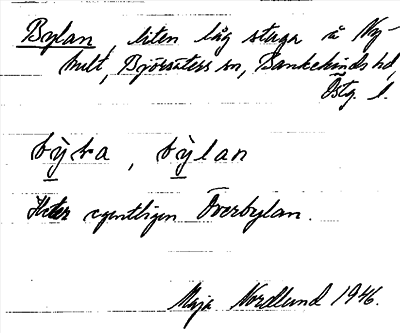 Bylan, liten låg stuga å Ny-
hult, Björsäters sn, Bankekinds hd,
Östg. l.
bỳka, bỳlan
Heter egentligen Överbylan.
Maja Nordlund 1946.